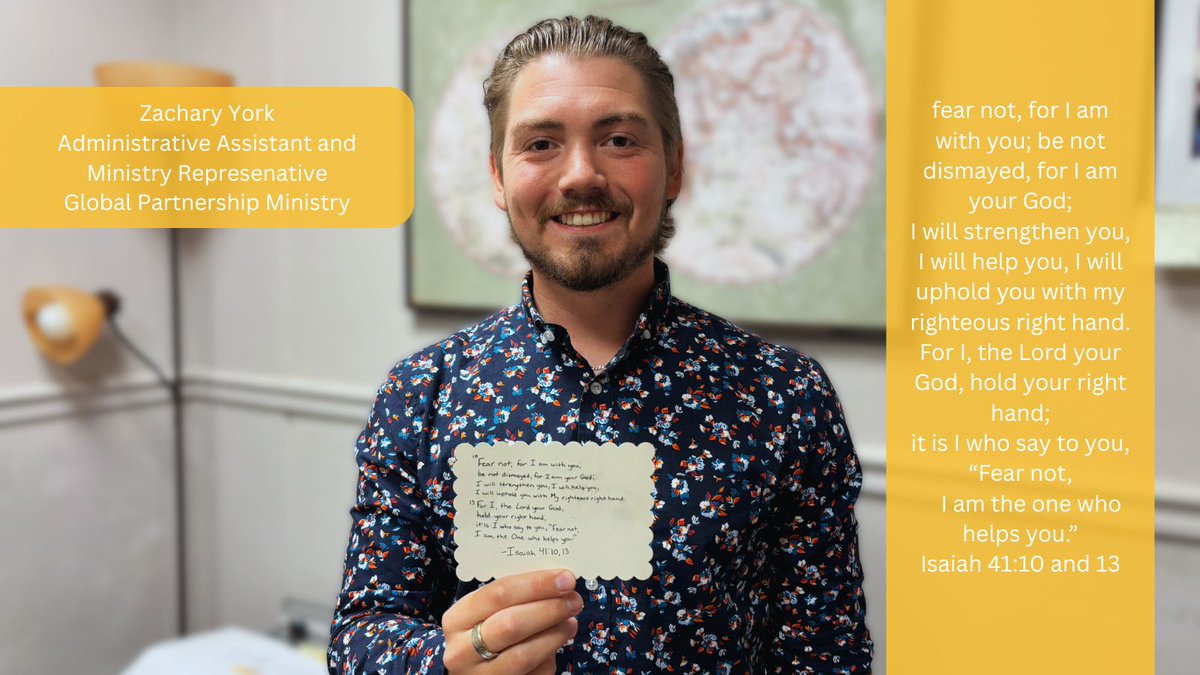 Zachary York
Administrative Assistant and
Ministry Represenative
Global Partnership Ministry
fear not, for I am
with you; be not
dismayed, for I am
your God;
I will strengthen you,
I will help you, I will
uphold you with my
righteous right hand.
For I, the Lord your
God, hold your right
hand;
it is I who say to you,
“Fear not,
I am the one who
helps you.”
Isaiah 41:10 and 13
10 Fear not, for I am with you;
be not dismayed, for I am your God;
I will strengthen you, I will help you,
I will uphold you with My righteous right hand.
13 For I, the Lord your God,
hold your right hand;
it is I who say to you, "Fear not,
I am the One who helps you."
-Isaiah 41:10,13